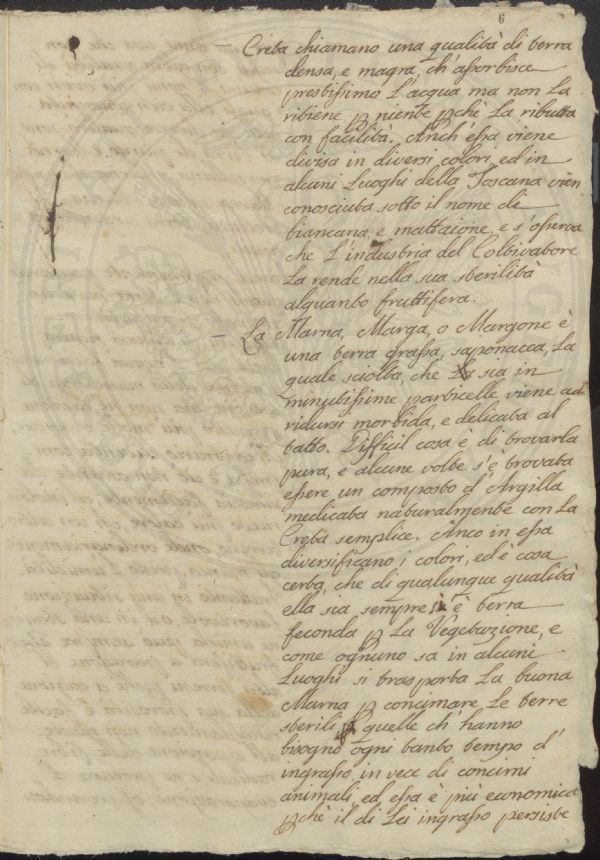 6
– Creta chiamano una qualità di terra
densa, e magra, ch'assorbisce
prestissimo L'acqua ma non La
ritiene p niente pchè La ributta
con facilità. Anch'essa viene
divisa in diversi colori, ed in
alcuni Luoghi della Toscana vien
conosciuta sotto il nome di
biancana, e mattaione, e s'osserva
che L'industria del Coltivatore
La rende nella sua sterilità
alquanto fruttifera.
– La Marna, Marga, o Margone è
una terra grassa, saponacea, La
quale sciolta, che sia in
minutissime particelle, viene ad
ridursi morbida, e delicata al
tatto. Difficil cosa è di trovarla
pura, e alcune volte s'è trovata
essere un composto d'Argilla
medicata naturalmente con La
Creta semplice. Anco in essa
diversificano i colori, ed è cosa
certa, che di qualunque qualità
ella sia sempre è terra
feconda p La Vegetazione, e
come ognuno sa in alcuni
Luoghi si trasporta La buona
Marna p concimare Le terre
sterili quelle ch'hanno
bisogno ogni tanto tempo d'
ingrasso, in vece di concimi
animali, ed essa è più economica
pchè il di Lei ingrasso persiste